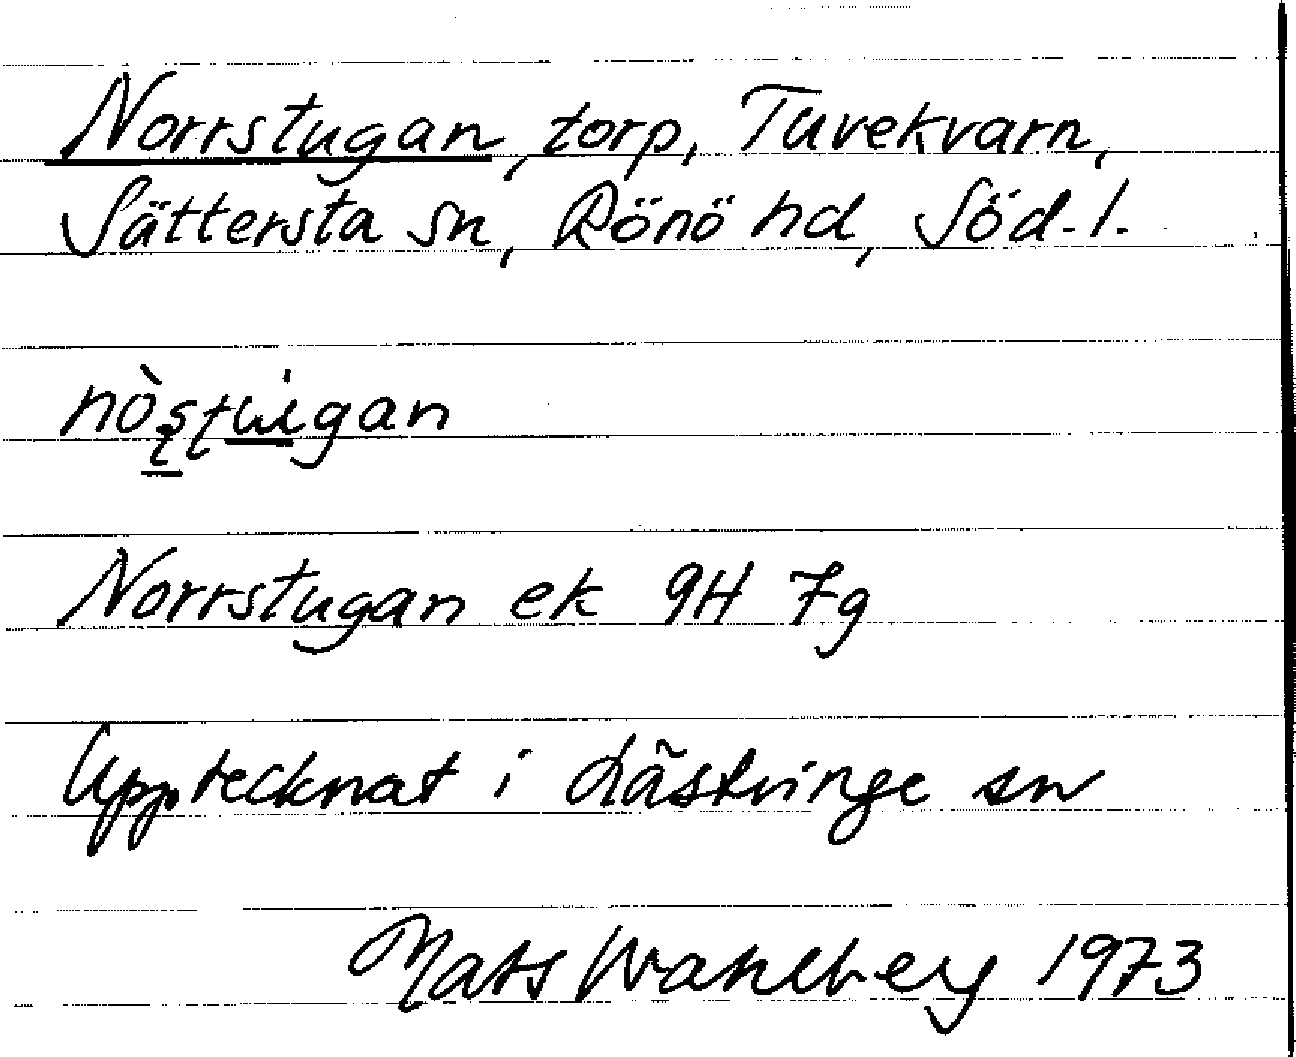 Norrstugan, torp, Tuvekvarn,
Sättersta sn, Rönö hd, Söd. l.
Norrstugan ek 9H 7g
Upptecknat i Lästringe sn
Mats Wahlberg 1973